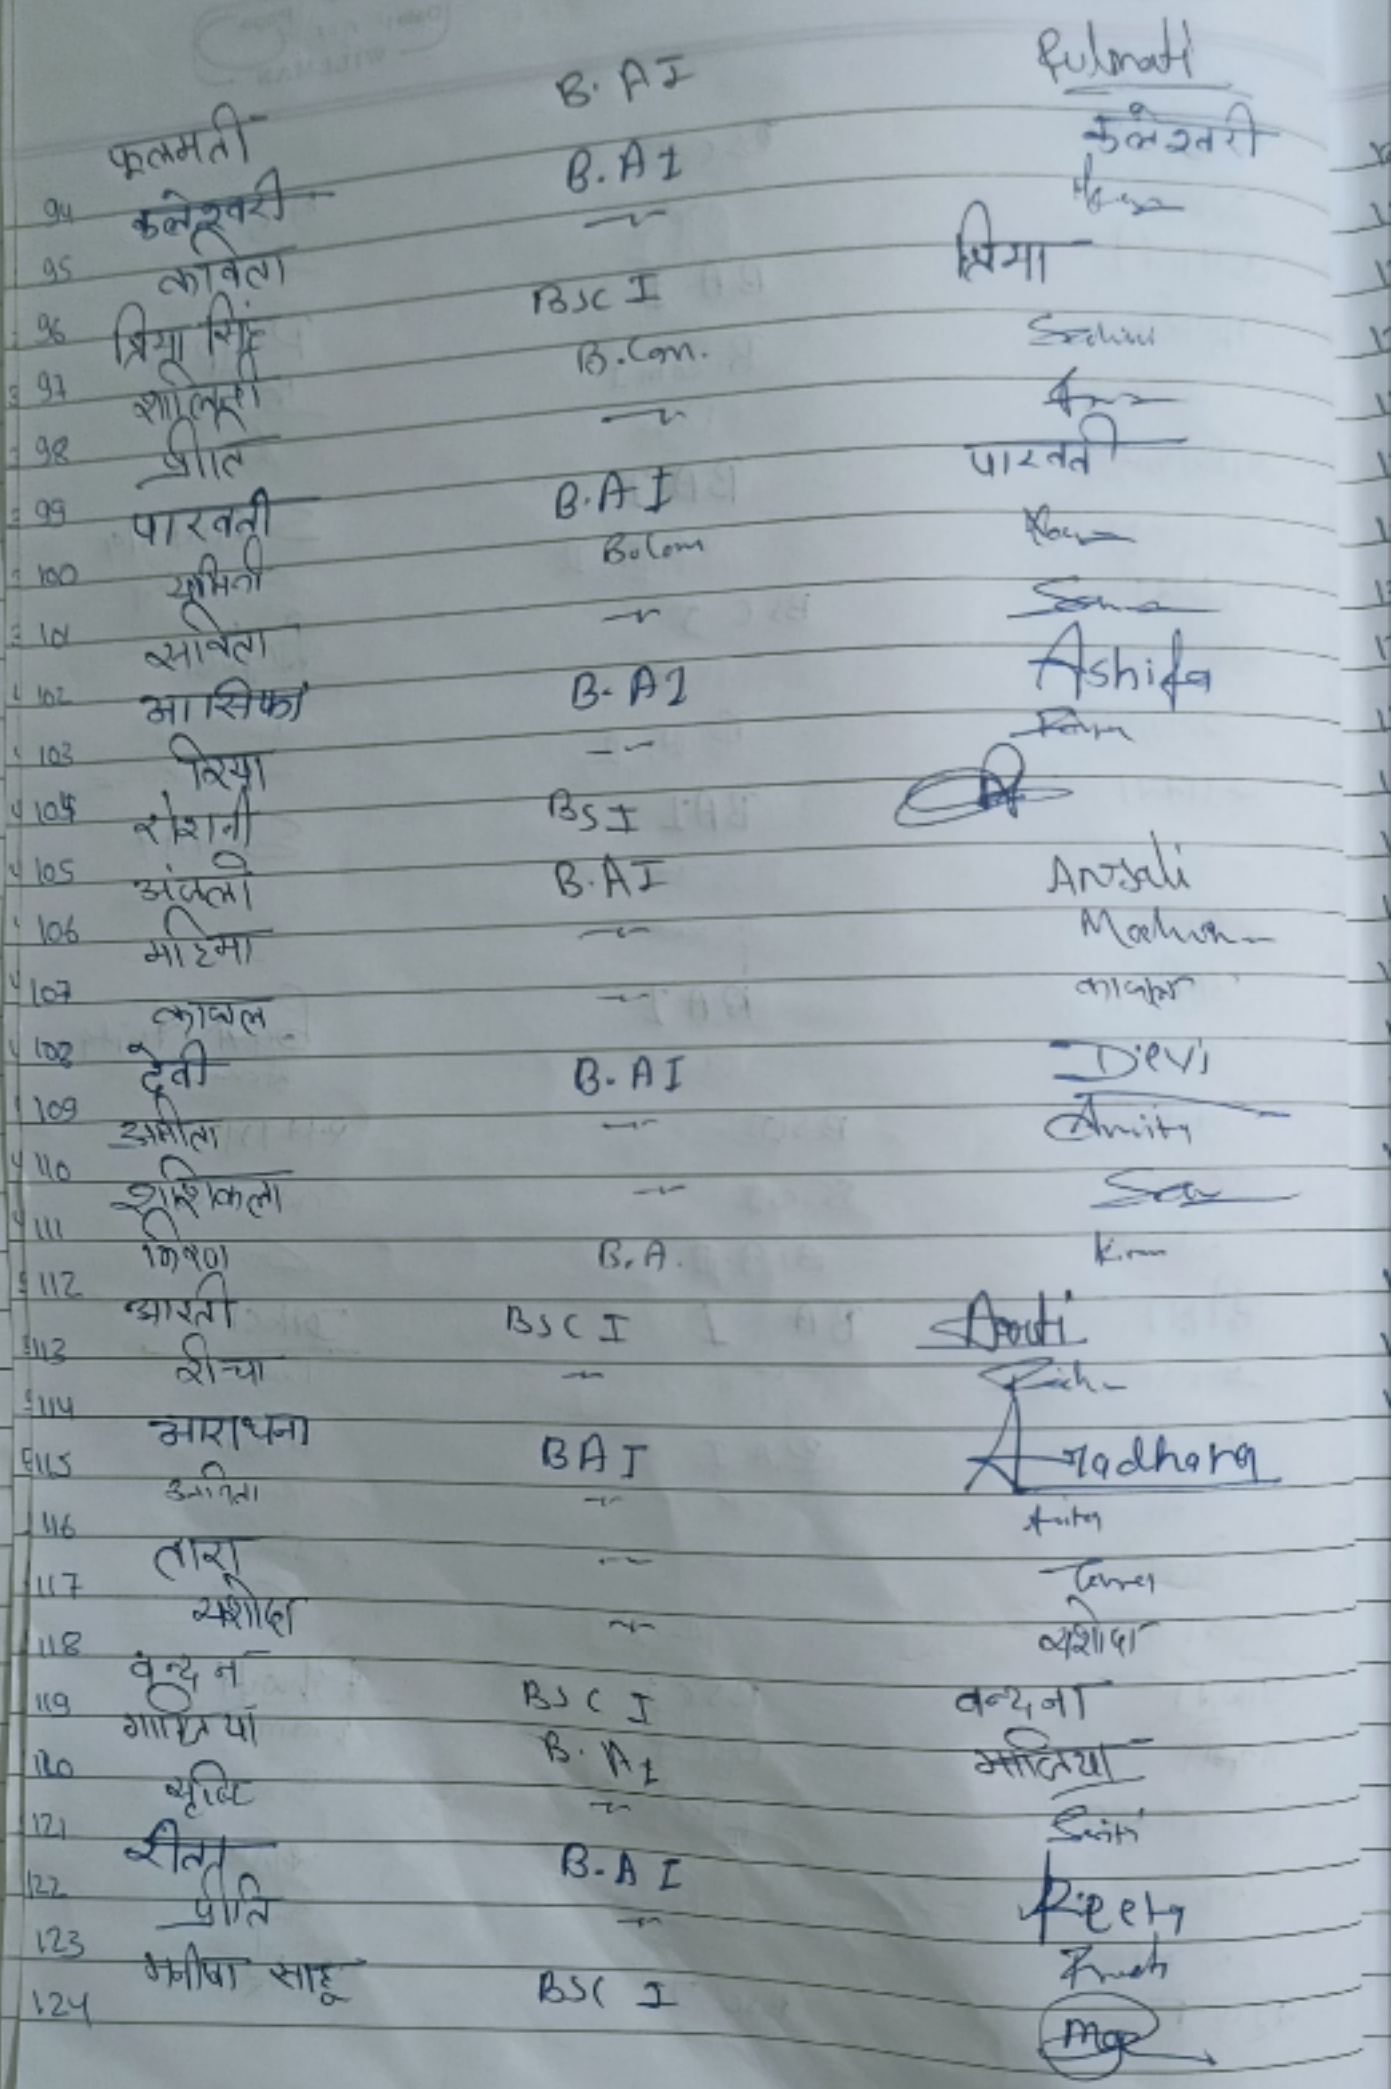 फूलमती B.A I Fulmati
94 कलेश्वरी B.A I कलेश्वरी
95 कविता —〃—
96 प्रिया सिंह BSC I प्रिया
97 शालिनी B.Com.
98 प्रीति —〃—
99 पारवती B.A I पारवती
100 B.Com
101 सविता —〃—
102 आसिफा B.A I Ashifa
103 रिया —〃—
104 रोशनी BS I
105 अंजली B.A I Anjali
106 महिमा —〃—
107 काजल —〃— काजल
108 देवी B.A I Devi
109 अमीता —〃— Amita
110 शशिकला —〃—
111 किरण B.A.
112 आरती BSC I Aarti
113 रीचा —〃— Richa
114 आराधना BA I Aradhana
115 अनिता —〃— Anita
116 तारा —〃— Tara
117 यशोदा —〃— यशोदा
118 वन्दना BSC I वन्दना
119 B.A I
120 —〃—
121 रीता B.A I Reeta
122 प्रीति —〃—
123 मनीषा साहू BSC I
124